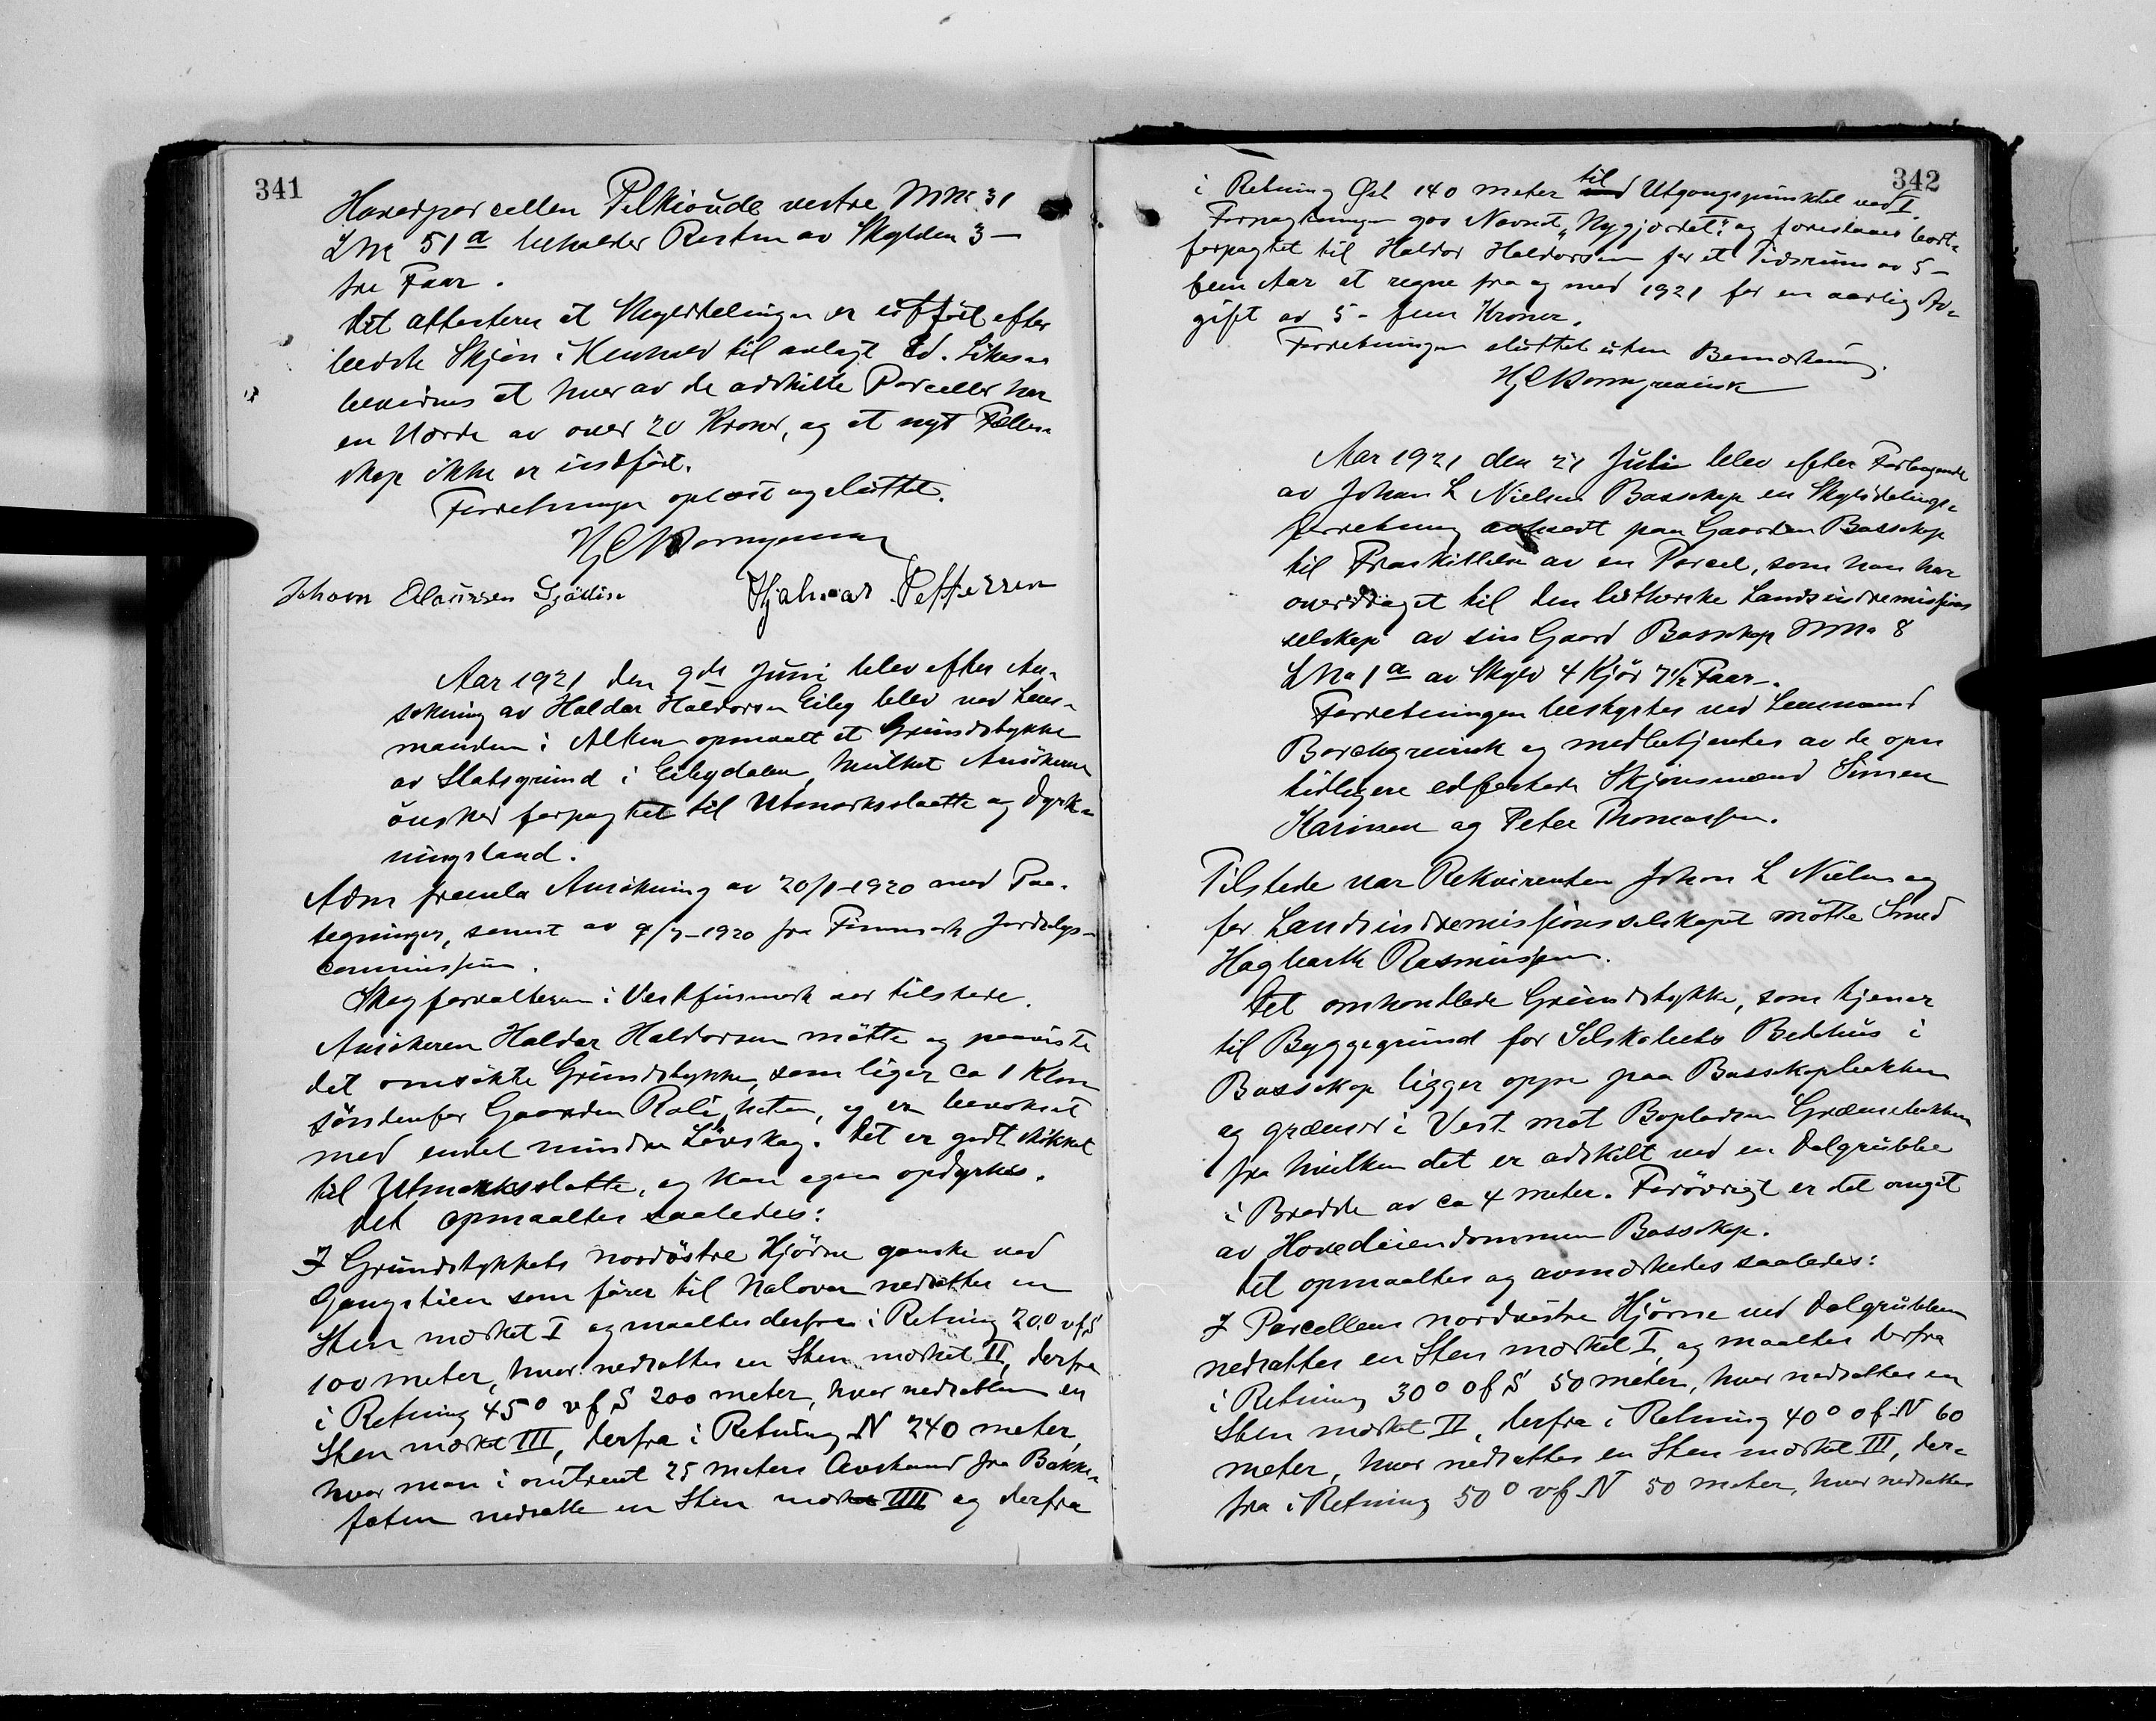 341
Hovedparcellen Pelkioude vestre MNr 31
LNr 51a beholder Resten av Skylden 3 –
tre Faar.
Det attesteres at Skylddelingen er utført efter
bedste Skjøn i Henhold til avlagt Ed. Likesaa
bevidnes at hver av de adskilte Parceller har
en Værdi av over 20 Kroner, og at nyt Fælles-
skap ikke er indført.
Forretningen oplæst og sluttet.
Johan Olaussen Hjalmar Pettersen
Aar 1921 den 9de Juni blev efter An-
søkning av Haldor Haldorsen Eiby blev ved Lens-
manden i Alten opmaalt et Grundstykke
av Statsgrund i Eibydalen, hvilket Ansøkeren
ønsker forpagtet til Utmarksslaatte og Dyrk-
ningsland.
Adm fremla Ansøkning av 20/1-1920 med Paa-
tegninger, senest av 9/7-1920 fra Finmark Jordsalgs-
commission.
Skogforvalteren i Vestfinmark var tilstede.
Ansøkeren Haldor Haldorsen møtte og paaviste
det omsøkte Grundstykke, som liger ca 1 Klm
søndenfor Gaarden Rolighten, og er bevokset
med endel mindre Løvskog. Det er godt skikket
til Utmarksslatte, og kan ogsaa opdyrkes.
Det opmaaltes saaledes:
I Grundstykkets nordøstre Hjørne ganske ved
Gangstien som fører til Nalovara nedsattes en
Sten merket I og maaltes derfra i Retning 20° v f S
100 meter, hvor nedsattes en Sten merket II, derfra
i Retning 45° v f S 200 meter, hvor nedsattes en
Sten merket III, derfra i Retning N 240 meter,
hvor man i omtrent 25 meters Avstand fra Bakke-
foten nedsatte en Sten merket IIII og derfra
342
i Retning Øst 140 meter til Utgangspunktet ved I.
Forpagtningen gas Navnet "Nygjordet" og foreslaaes bort-
forpagtet til Haldor Haldorsen for et Tidsrum av 5 –
fem Aar at regne fra og med 1921 for en aarlig Av-
gift av 5 - fem Kroner.
Forretningen sluttet uten Bemerkning.
Aar 1921 den 21 Juli blev efter Forlangende
av Johan L Nielsen Bossekop en Skylddelings-
forretning avholdt paa Gaarden Bossekop
til Fraskillelse av en Parcel, som han har
overdraget til den lutherske Landsindremissions
selskap av sin Gaard Bossekop MNo 8
LNo 1a av Skyld 4 Kjør 7 1/2 Faar.
Forretningen bestyrtes ved Lensmand
Borchgrevink og medbetjentes av de opn
tidligere edfæstede Skjønsmænd Simon
Karinsen og Peter Thomassen.
Tilstede var Rekvirenten Johan L Nielsen og
for Landsindremissionsselskapet møtte Smed
Hagbarth Rasmussen.
Det omhandlede Grundstykke, som tjener
til Byggegrund for Selskabets Bedehus i
Bossekop ligger oppe paa Bossekopbakken
og grænser i Vest mot Bopladsen Grænsebakken
fra hvilken det er adskilt ved en Dalgrubbe
i Bredde av ca 4 meter. Forøvrigt er det omgit
av Hovedeiendommen Bossekop.
Det opmaaltes og avmerkedes saaledes:
I Parcellens nordvestre Hjørne ved Dalgrubben
nedsattes en Sten merket I, og maaltes derfra
i Retning 30° o f S 50 meter, hvor nedsattes en
Sten merket II, derfra i Retning 40° o f N 60
meter, hvor nedsattes en Sten merket III, der-
fra i Retning 50° v f N 50 meter, hvor nedsattes